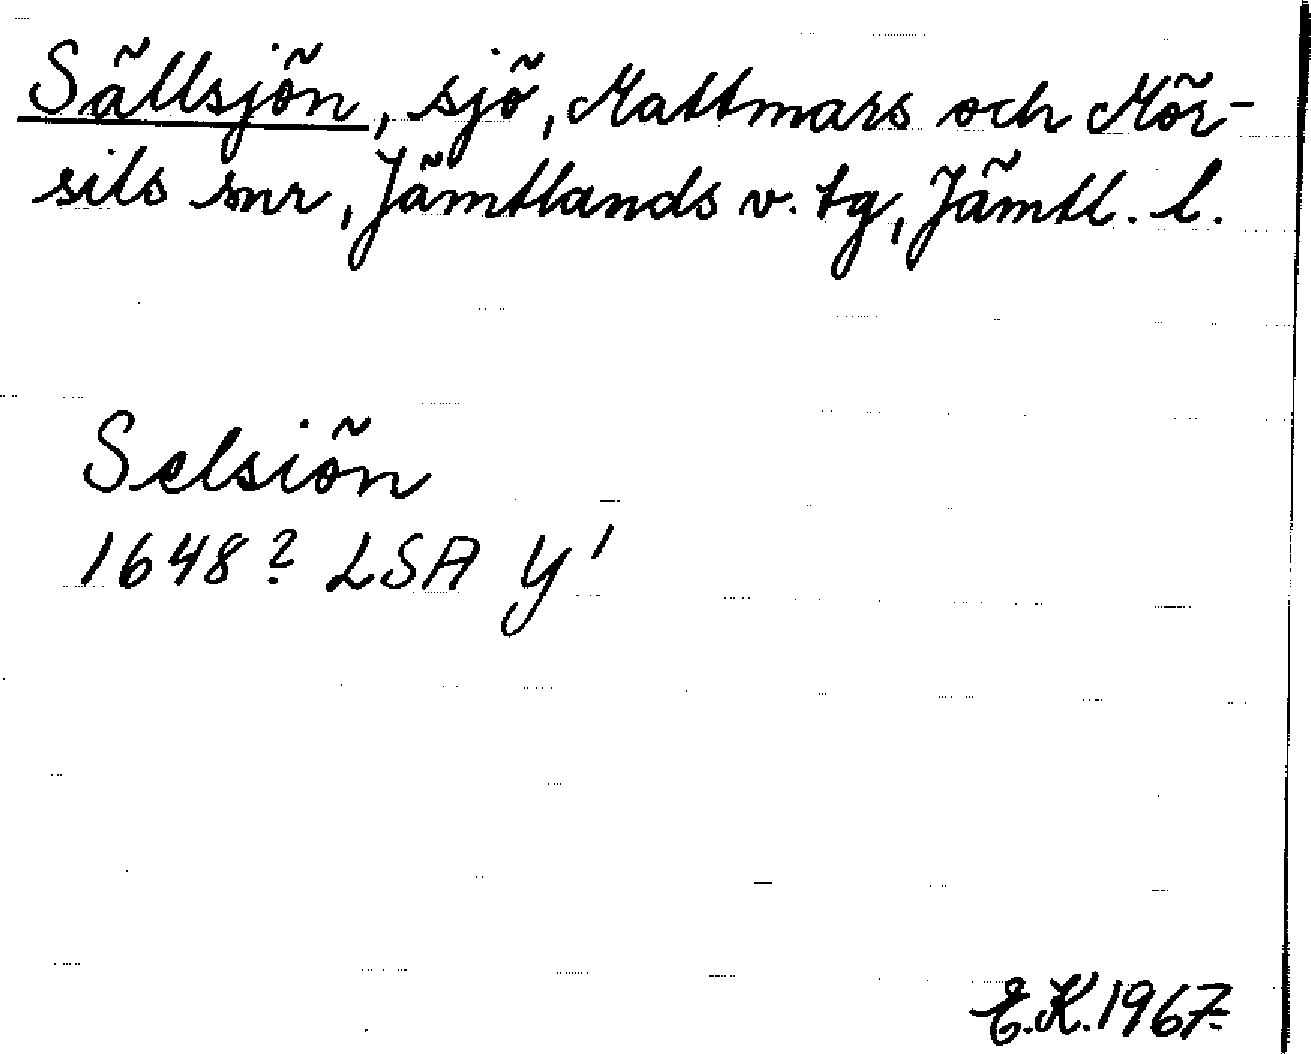 Sällsjön, sjö, Mattmars och Mör-
sils snr, Jämtlands v. tg, Jämtl. l.
Selsiön
1648? LSA Y'
E.K. 1967